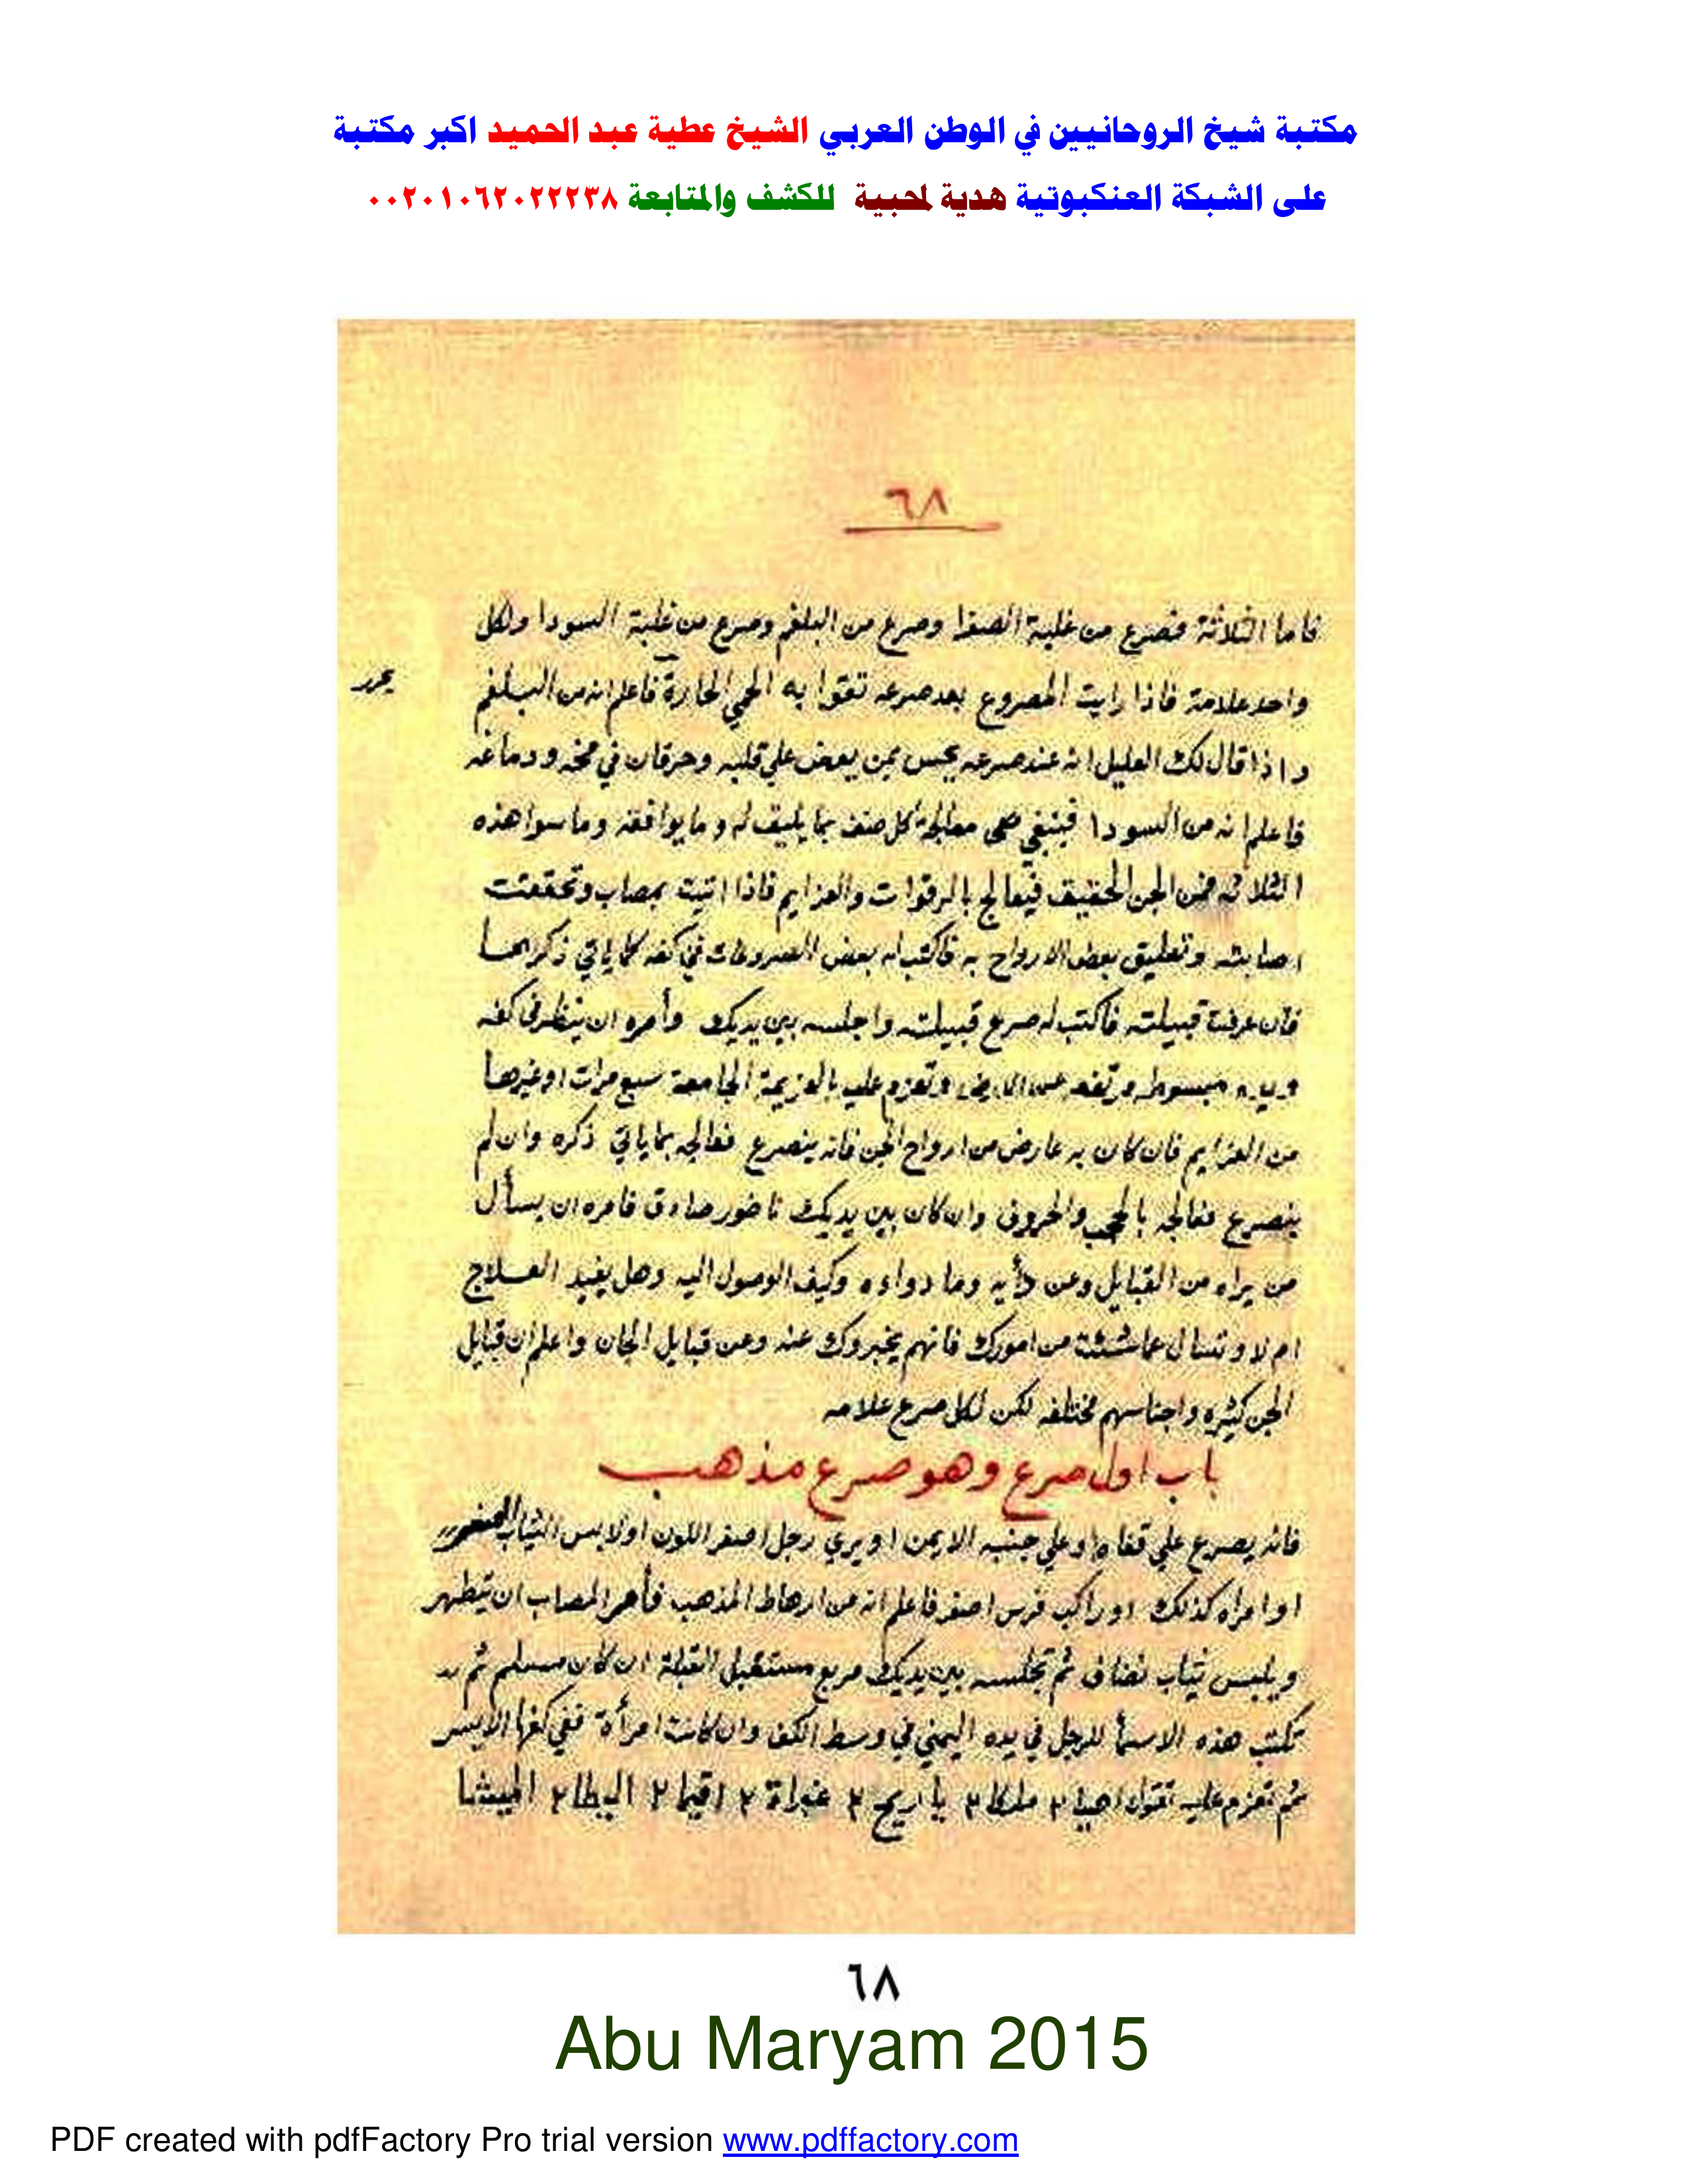 مكتبة شيخ الروحانيين في الوطن العربي الشيخ عطية عبد الحميد اكبر مكتبة
على الشبكة العنكبوتية هدية لمحبية للكشف والمتابعة ٠٠٢٠١٠٦٢٠٢٢٢٣٨
٦٨
فاما الثلاثة فصرع من غلبة الصفرا وصرع من البلغم وصرع من غلبة السودا ولكل
واحد علامة فاذا رايت المصروع بعد صرعه تعقوا به الحمي الحارة فاعلم انه من البلغم
واذا قال لك العليل انه عند صرعه يحس بمن يعض علي قلبه وحرقان في مخه ودماغه
فاعلم انه من السودا فينبغي معالجة كل صنف بما يليق له وما يوافقه وما سوا هذه
الثلاثه فمن الجن الحقيق فيعالج بالرقوات والعزايم فاذا اتيت بمصاب وتحققت
اصابته وتعليق بعض الارواح به فاكتب له بعض الصروعات في كفه كما ياتي ذكرها
فان عرفت قبيلته فاكتب له صرع قبيلته واجلسه بين يديك وأمره ان ينظر في كفه
ويده مبسوطه مرتفعه عن الارض وتعزم عليه بالعزيمة الجامعة سبع مرات اوغيرها
من العزايم فان كان به عارض من ارواح الجن فانه ينصرع فعالجه بما ياتي ذكره وان لم
ينصرع فعالجه بالحجب والحروف وان كان بين يديك ناضور صادق فامره ان يسأل
من يراه من القبايل وعن دأيه وما دواءه وكيف الوصول اليه وهل يفيد العلاج
ام لا وتسال عما شئت من امورك فانهم يخبروك عنه وعن قبايل الجان واعلم ان قبايل
الجن كثيره واجناسهم مختلفه لكن لكل صرع علامه
باب اول صرع وهو صرع مذهب
فانه يصرع علي قفاه او علي جنبه الايمن او يري رجل اصفر اللون اولابس الثياب الصفر
او امراه كذلك او راكب فرس اصفر فاعلم انه من ارهاط المذهب فأمر المصاب ان يتطهر
ويلبس ثياب نضاف ثم تجلسه بين يديك مربع مستقبل القبلة ان كان مسلم ثم
تكتب هذه الاسمأ للرجل في يده اليمني في وسط الكف وان كانت امرأة ففي كفها الايسر
ثم تعزم عليه تقول اهيا ٢ ملكا ٢ ياريح ٢ ٢ اقيا ٢ البطا ٢ الهيشا
٦٨
Abu Maryam 2015
PDF created with pdfFactory Pro trial version www.pdffactory.com